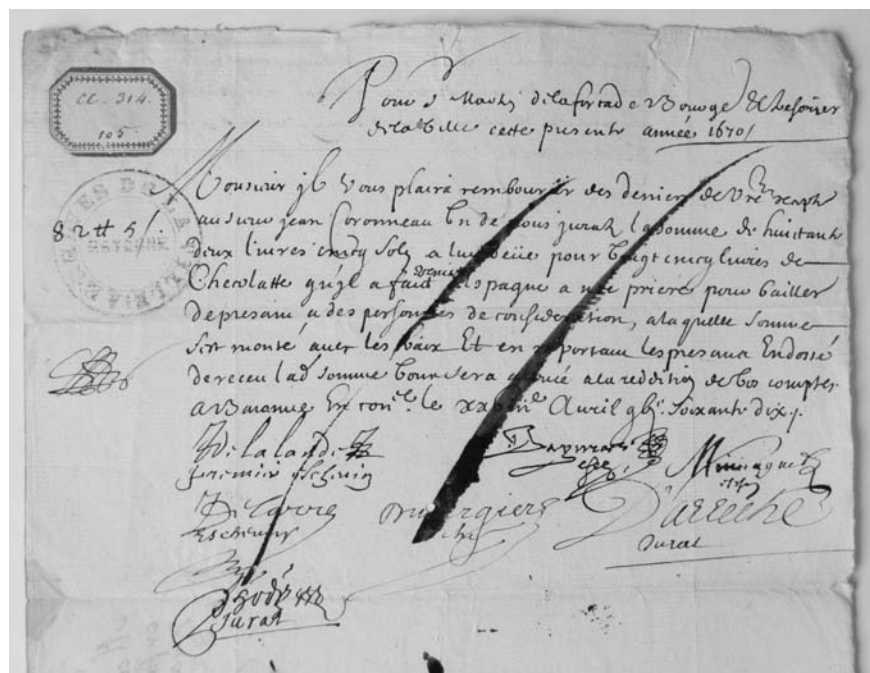 CC. 314.
105
Pour Sr Martin de Lafourcade Bourge & thesorier
de la Ville cette presente année 1670
ARCHIVES DE LA VILLE
BAYONNE
82 ₶ 5 s.
Monsieur il Vous plaira rembourser des deniers de Vre recepte
au sieur jean Coronneau Un de nous jurats la somme de huictante
deux livres cincq solz a luy deüe pour Vingt cincq livres de
Chocolatte qu'il a faict venir despagne a nre priere pour bailler
de presant a des personnes de consideration, a laquelle somme
sont monté avec les faix Et en raportant les presantes Endossé
de receu lad somme Vous sera aloué a la reddition de vos comptes
a Baionne En conel. le Avril soixante dix.
Delalande
premier eschevin
eschevin
Eschevin
D'arreche
Jurat
Jurat